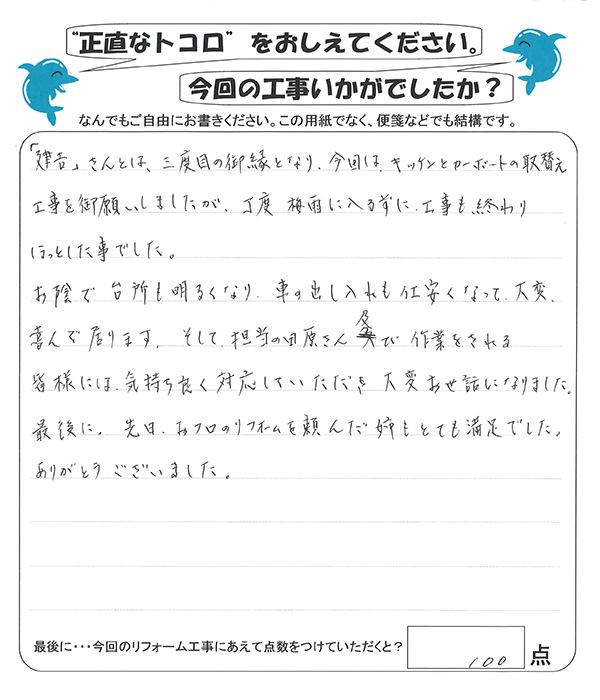 “正直なトコロ”をおしえてください。
今回の工事いかがでしたか？
なんでもご自由にお書きください。この用紙でなく、便箋などでも結構です。
「建吉」さんとは、三度目の御縁となり、今回は、キッチンとカーポートの取替え
工事を御願いしましたが、丁度 梅雨に入る前に、工事も終わり
ほっとした事でした。
お陰で 台所も明るくなり、車の出し入れも仕安くなって、大変、
喜んで居ります。そして、担当の田原さん 及び 作業をされる
皆様には、気持ち良く対応していただき 大変お世話になりました。
最後に、先日、お フロのリフォームを頼んだ姉もとても満足でした。
ありがとうございました。
最後に・・・今回のリフォーム工事にあえて点数をつけていただくと？
100 点